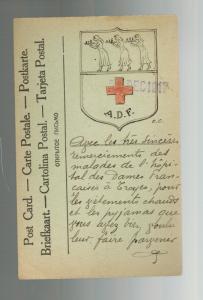 Post Card. — Carte Postale. — Postkarte.
Briefkaart. — Cartolina Postal. — Tarjeta Postal.
ОТКРЫТОЕ ПИСЬМО
A.D.F.
Avec les très sincères
remerciements des
malades de l'hôpi-
tal des Dames Fran-
çaises à Troyes, pour
les vêtements chauds
et les pyjamas que
vous avez bien voulu
leur faire parvenir